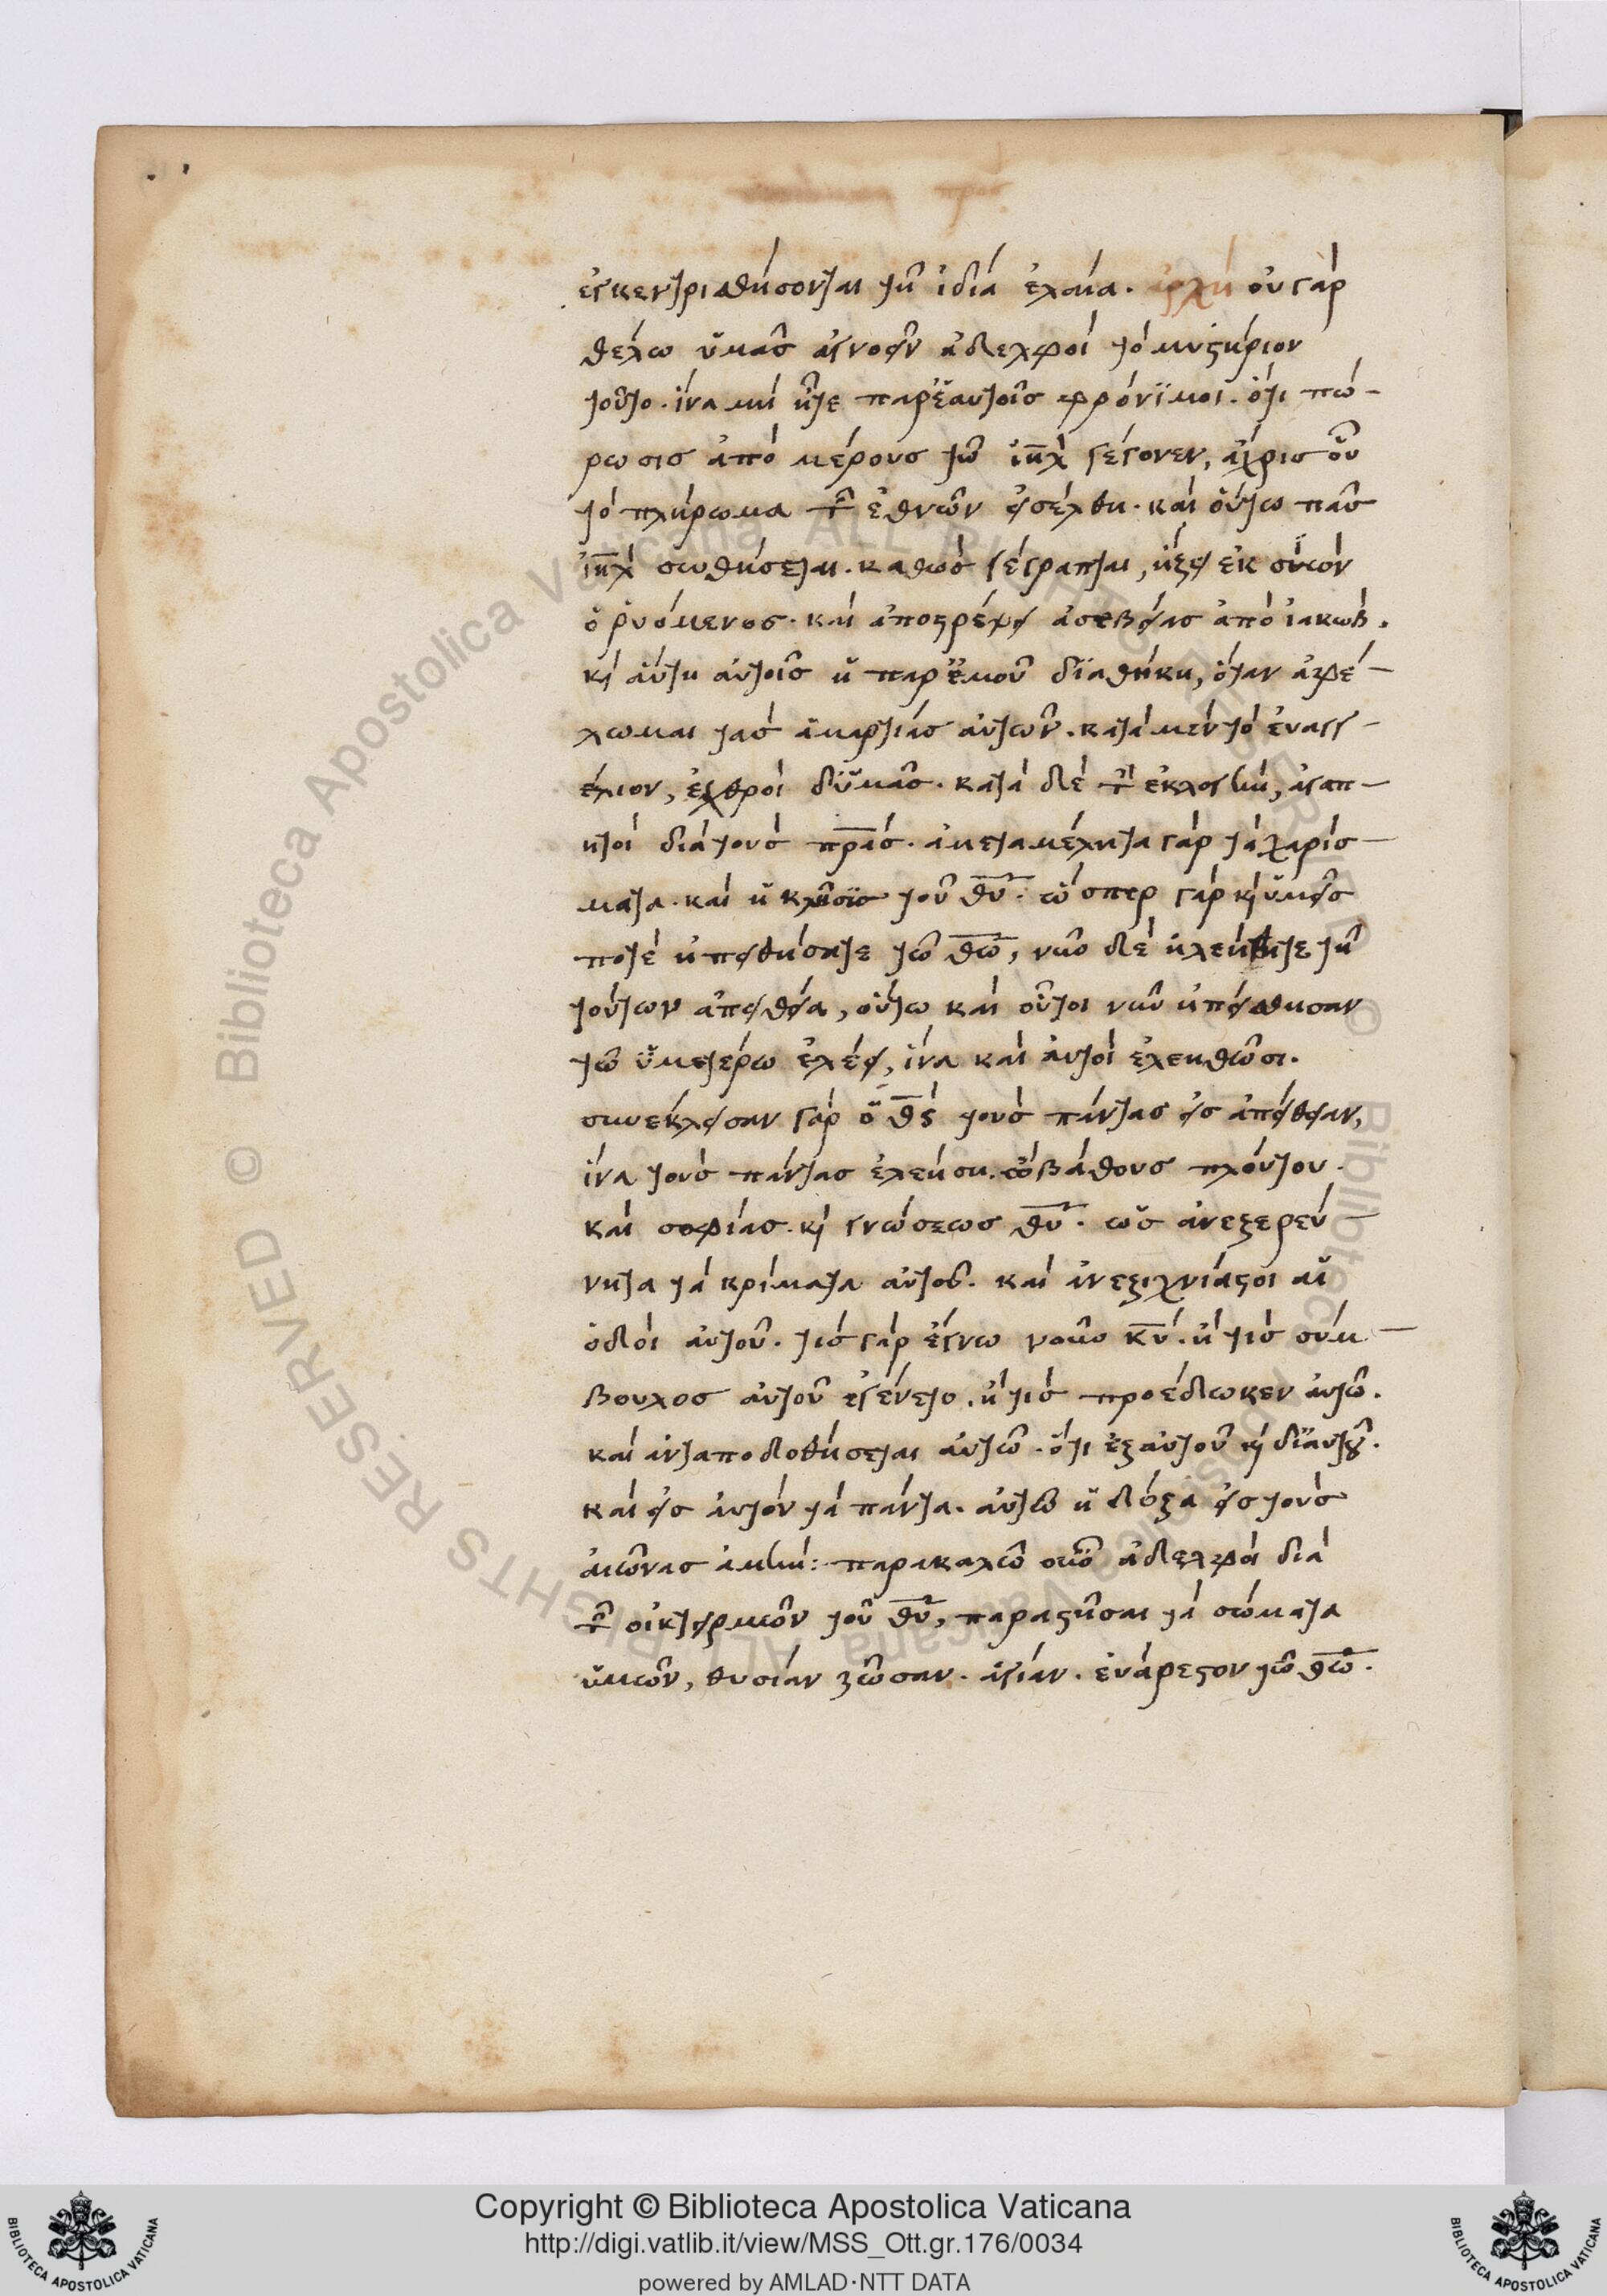 ἐγκεντρισθήσονται τῆ ἰδία ἐλαία. ἀρχὴ οὐ γὰρ
θέλω ὑμᾶς ἀγνοεῖν ἀδελφοὶ τὸ μυστήριον
τοῦτο. ἵνα μὴ ἦτε παρ' ἑαυτοῖς φρόνϊμοι. ὅτι πώ-
ρωσις ἀπὸ μέρους τῶ ἰη̅λ̅ γέγονεν, ἄχρις οὗ
τὸ πλήρωμα τῶν ἐθνῶν εἰσέλθη. καὶ οὕτω πᾶς
ἰη̅λ̅ σωθήσεται. καθὼς γέγραπται, ἥξει ἐκ σϊὼν
ὁ ῥυόμενος. καὶ ἀποστρέψει ἀσεβείας ἀπὸ ἰακώβ.
κ αὕτη αὐτοῖς ἡ παρ' ἐμοῦ δϊαθήκη, ὅταν ἀφέ-
λωμαι τὰς ἁμαρτίας αὐτῶν. κατὰ μὲν τὸ εὐαγγ-
έλιον, ἐχθροὶ δι' ὑμᾶς. κατὰ δὲ τὴν ἐκλογὴν, ἀγαπ-
ητοὶ διὰ τοὺς π̅ρ̅α̅ς. ἀμεταμέλητα γὰρ τὰ χαρίσ-
ματα. καὶ ἡ κλῆσϊς τοῦ θ̅υ̅. ὥσπερ γὰρ κ ὑμεῖς
ποτὲ ἠπειθήσατε τῶ θ̅ω̅, νῦν δὲ ἠλεήθητε τῆ
τούτων ἀπειθεία, οὕτω καὶ οὗτοι νῦν ἠπείθησαν
τῶ ὑμετέρω ἐλέει, ἵνα καὶ αὐτοὶ ἐλεηθῶσι.
συνέκλεισαν γὰρ ὁ θ̅ς̅ τοὺς πάντας εἰς ἀπείθειαν,
ἵνα τοὺς πάντας ἐλεήση. ὢ βάθους πλούτου.
καὶ σοφίας. κ γνώσεως θ̅υ̅. ὡς ἀνεξερεύ-
νητα τὰ κρίματα αὐτοῦ. καὶ ἀνεξιχνίαστοι αἱ
ὁδοὶ αὐτοῦ. τὶς γὰρ ἔγνω νοῦν κ̅υ̅. ἢ τὶς σύμ-
βουλος αὐτοῦ ἐγένετο. ἢ τὶς προέδωκεν αὐτῶ.
καὶ ἀνταποδοθήσεται αὐτῶ. ὅτι ἐξ αὐτοῦ κ δι' αὐτοῦ.
καὶ εἰς αὐτὸν τὰ πάντα. αὐτῶ ἡ δόξα εἰς τοὺς
αἰῶνας ἀμήν: παρακαλῶ οὖν ἀδελφοὶ διὰ
τῶν οἰκτειρμῶν τοῦ θ̅υ̅, παραστῆσαι τὰ σώματα
ὑμῶν, θυσίαν ζῶσαν. ἁγίαν. εὐάρεστον τῶ θ̅ω̅.
Copyright © Biblioteca Apostolica Vaticana
http://digi.vatlib.it/view/MSS_Ott.gr.176/0034
powered by AMLAD·NTT DATA
BIBLIOTECA APOSTOLICA VATICANA
BIBLIOTECA APOSTOLICA VATICANA
© Biblioteca Apostolica Vaticana ALL RIGHTS RESERVED